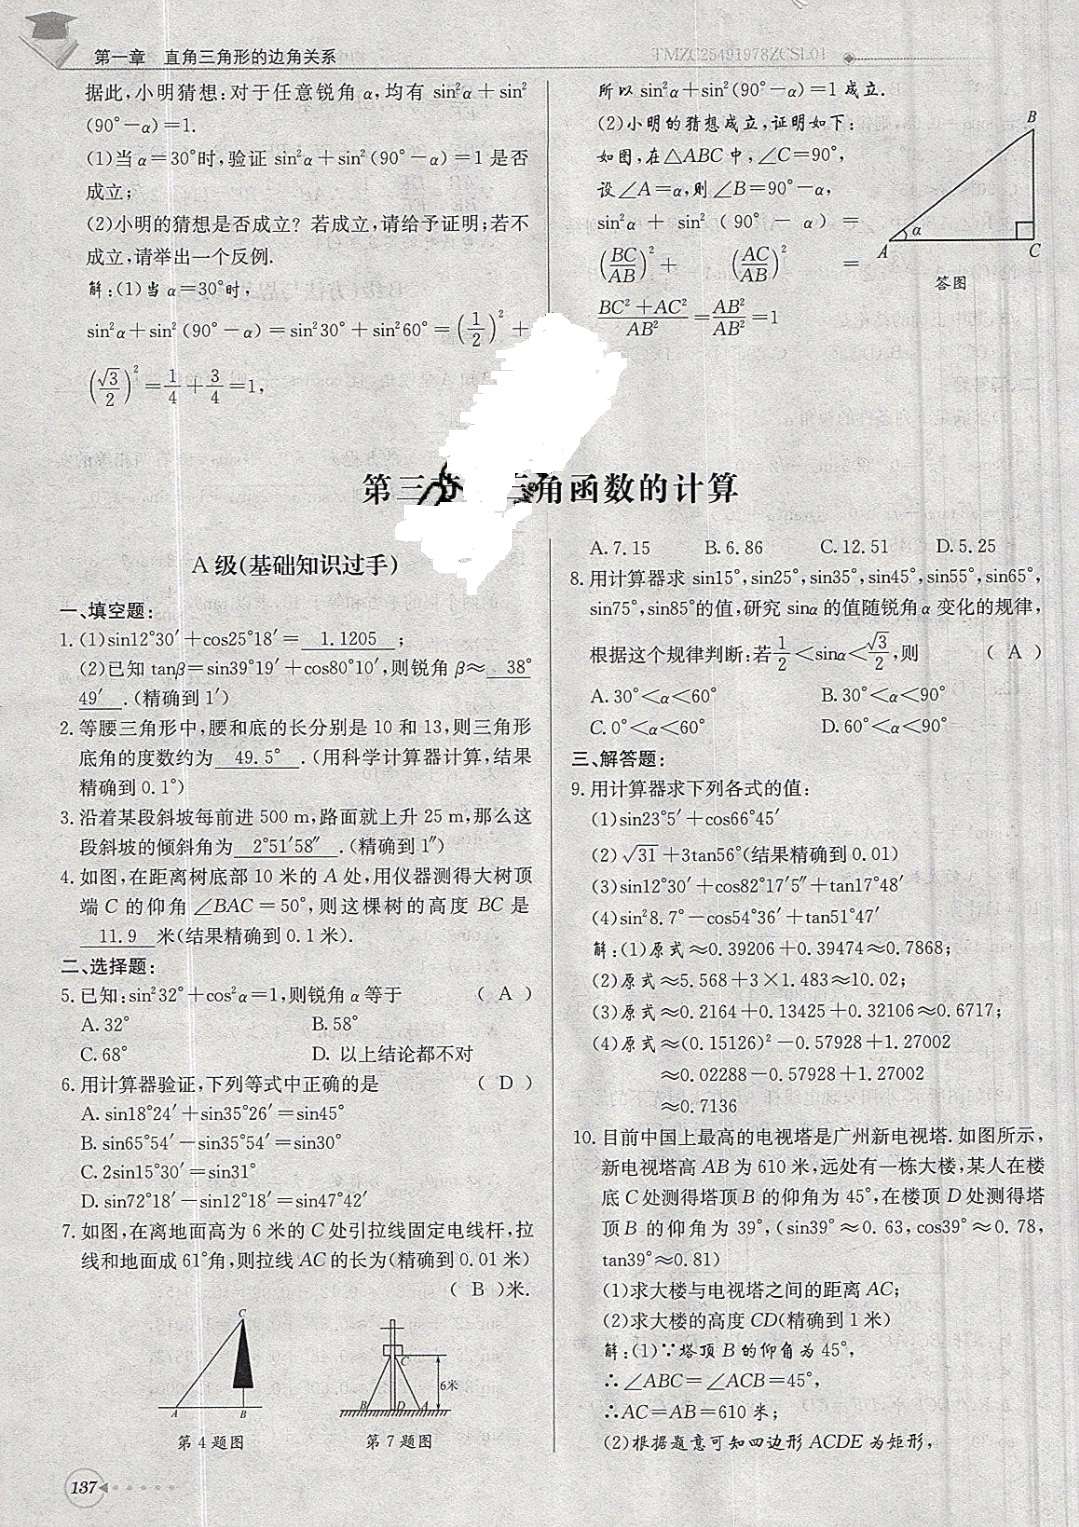 第一章 直角三角形的边角关系
TMZC25491978ZCSL01
据此,小明猜想:对于任意锐角 α,均有 sin²α+sin²
(90°-α)=1.
(1)当 α=30°时,验证 sin²α+sin²(90°-α)=1 是否
成立;
(2)小明的猜想是否成立?若成立,请给予证明;若不
成立,请举出一个反例.
解:(1)当 α=30°时,
sin²α+sin²(90°-α)=sin²30°+sin²60°=(1/2)²+
(√3/2)²=1/4+3/4=1,
所以 sin²α+sin²(90°-α)=1 成立.
(2)小明的猜想成立,证明如下:
如图,在△ABC 中,∠C=90°,
设∠A=α,则∠B=90°-α,
sin²α + sin²(90° - α) =
(BC/AB)² + (AC/AB)² =
BC²+AC²/AB²=AB²/AB²=1
B
α
A
C
答图
第三 角函数的计算
A 级(基础知识过手)
一、填空题:
1. (1)sin12°30′+cos25°18′= 1.1205 ;
(2)已知 tanβ=sin39°19′+cos80°10′,则锐角 β≈ 38°
49′ .(精确到 1′)
2. 等腰三角形中,腰和底的长分别是 10 和 13,则三角形
底角的度数约为 49.5° .(用科学计算器计算,结果
精确到 0.1°)
3. 沿着某段斜坡每前进 500 m,路面就上升 25 m,那么这
段斜坡的倾斜角为 2°51′58″ .(精确到 1″)
4. 如图,在距离树底部 10 米的 A 处,用仪器测得大树顶
端 C 的仰角∠BAC=50°,则这棵树的高度 BC 是
11.9 米(结果精确到 0.1 米).
二、选择题:
5. 已知:sin²32°+cos²α=1,则锐角 α 等于 ( A )
A. 32° B. 58°
C. 68° D. 以上结论都不对
6. 用计算器验证,下列等式中正确的是 ( D )
A. sin18°24′+sin35°26′=sin45°
B. sin65°54′-sin35°54′=sin30°
C. 2sin15°30′=sin31°
D. sin72°18′-sin12°18′=sin47°42′
7. 如图,在离地面高为 6 米的 C 处引拉线固定电线杆,拉
线和地面成 61°角,则拉线 AC 的长为(精确到 0.01 米)
( B )米.
C
A
B
第 4 题图
C
6米
B
D
A
第 7 题图
A. 7.15 B. 6.86 C. 12.51 D. 5.25
8. 用计算器求 sin15°,sin25°,sin35°,sin45°,sin55°,sin65°,
sin75°,sin85°的值,研究 sinα 的值随锐角 α 变化的规律,
根据这个规律判断:若1/2<sinα<√3/2,则 ( A )
A. 30°<α<60° B. 30°<α<90°
C. 0°<α<60° D. 60°<α<90°
三、解答题:
9. 用计算器求下列各式的值:
(1)sin23°5′+cos66°45′
(2)√31+3tan56°(结果精确到 0.01)
(3)sin12°30′+cos82°17′5″+tan17°48′
(4)sin²8.7°-cos54°36′+tan51°47′
解:(1)原式≈0.39206+0.39474≈0.7868;
(2)原式≈5.568+3×1.483≈10.02;
(3)原式≈0.2164+0.13425+0.32106≈0.6717;
(4)原式≈(0.15126)²-0.57928+1.27002
≈0.02288-0.57928+1.27002
≈0.7136
10. 目前中国上最高的电视塔是广州新电视塔.如图所示,
新电视塔高 AB 为 610 米,远处有一栋大楼,某人在楼
底 C 处测得塔顶 B 的仰角为 45°,在楼顶 D 处测得塔
顶 B 的仰角为 39°,(sin39°≈0.63,cos39°≈0.78,
tan39°≈0.81)
(1)求大楼与电视塔之间的距离 AC;
(2)求大楼的高度 CD(精确到 1 米)
解:(1)∵塔顶 B 的仰角为 45°,
∴∠ABC=∠ACB=45°,
∴AC=AB=610 米;
(2)根据题意可知四边形 ACDE 为矩形,
137